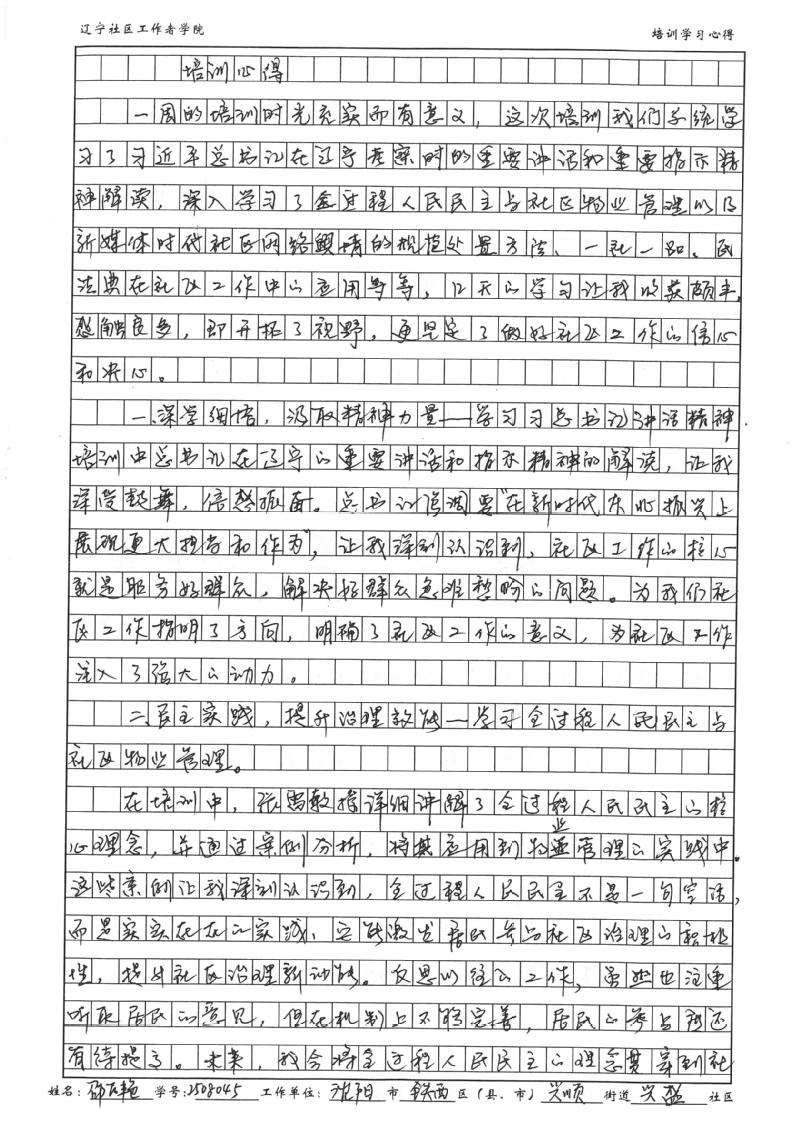 辽宁社区工作者学院 培训学习心得
培训心得
一周的培训时光充实而有意义，这次培训我们系统学
习了习近平总书记在辽宁考察时的重要讲话和重要指示精
神解读，深入学习了全过程人民民主与社区物业管理以及
新媒体时代社区网络舆情的规范处置方法、一社一品、民
法典在社区工作中的应用等等，几天的学习让我收获颇丰，
感触良多，即开拓了视野，更坚定了做好社区工作的信心
和决心。
一、深学细悟，汲取精神力量——学习习总书记讲话精神
培训中总书记在辽宁的重要讲话和指示精神的解读，让我
深受鼓舞，倍感振奋。总书记强调要“在新时代东北振兴上
展现更大担当和作为”，让我深刻认识到，社区工作的核心
就是服务好群众，解决好群众急难愁盼的问题。为我们社
区工作指明了方向，明确了社区工作的意义，为社区工作
注入了强大的动力。
二、民主实践，提升治理效能——学习全过程人民民主与
社区物业管理。
在培训中，张雷教授详细讲解了全过程人民民主的核
心理念，并通过案例分析，将其应用到物业管理的实践中。
这些案例让我深刻认识到，全过程人民民主不是一句空话，
而是实实在在的实践，它能激发居民参与社区治理的积极
性，提升社区治理新动能。反思以往的工作，虽然也注重
听取居民的意见，但在机制上不够完善，居民的参与度还
有待提高。未来，我会将全过程人民民主的理念贯穿到社
姓名： 学号：2508045 工作单位：沈阳 市 铁西 区（县、市） 兴顺 街道 兴盛 社区